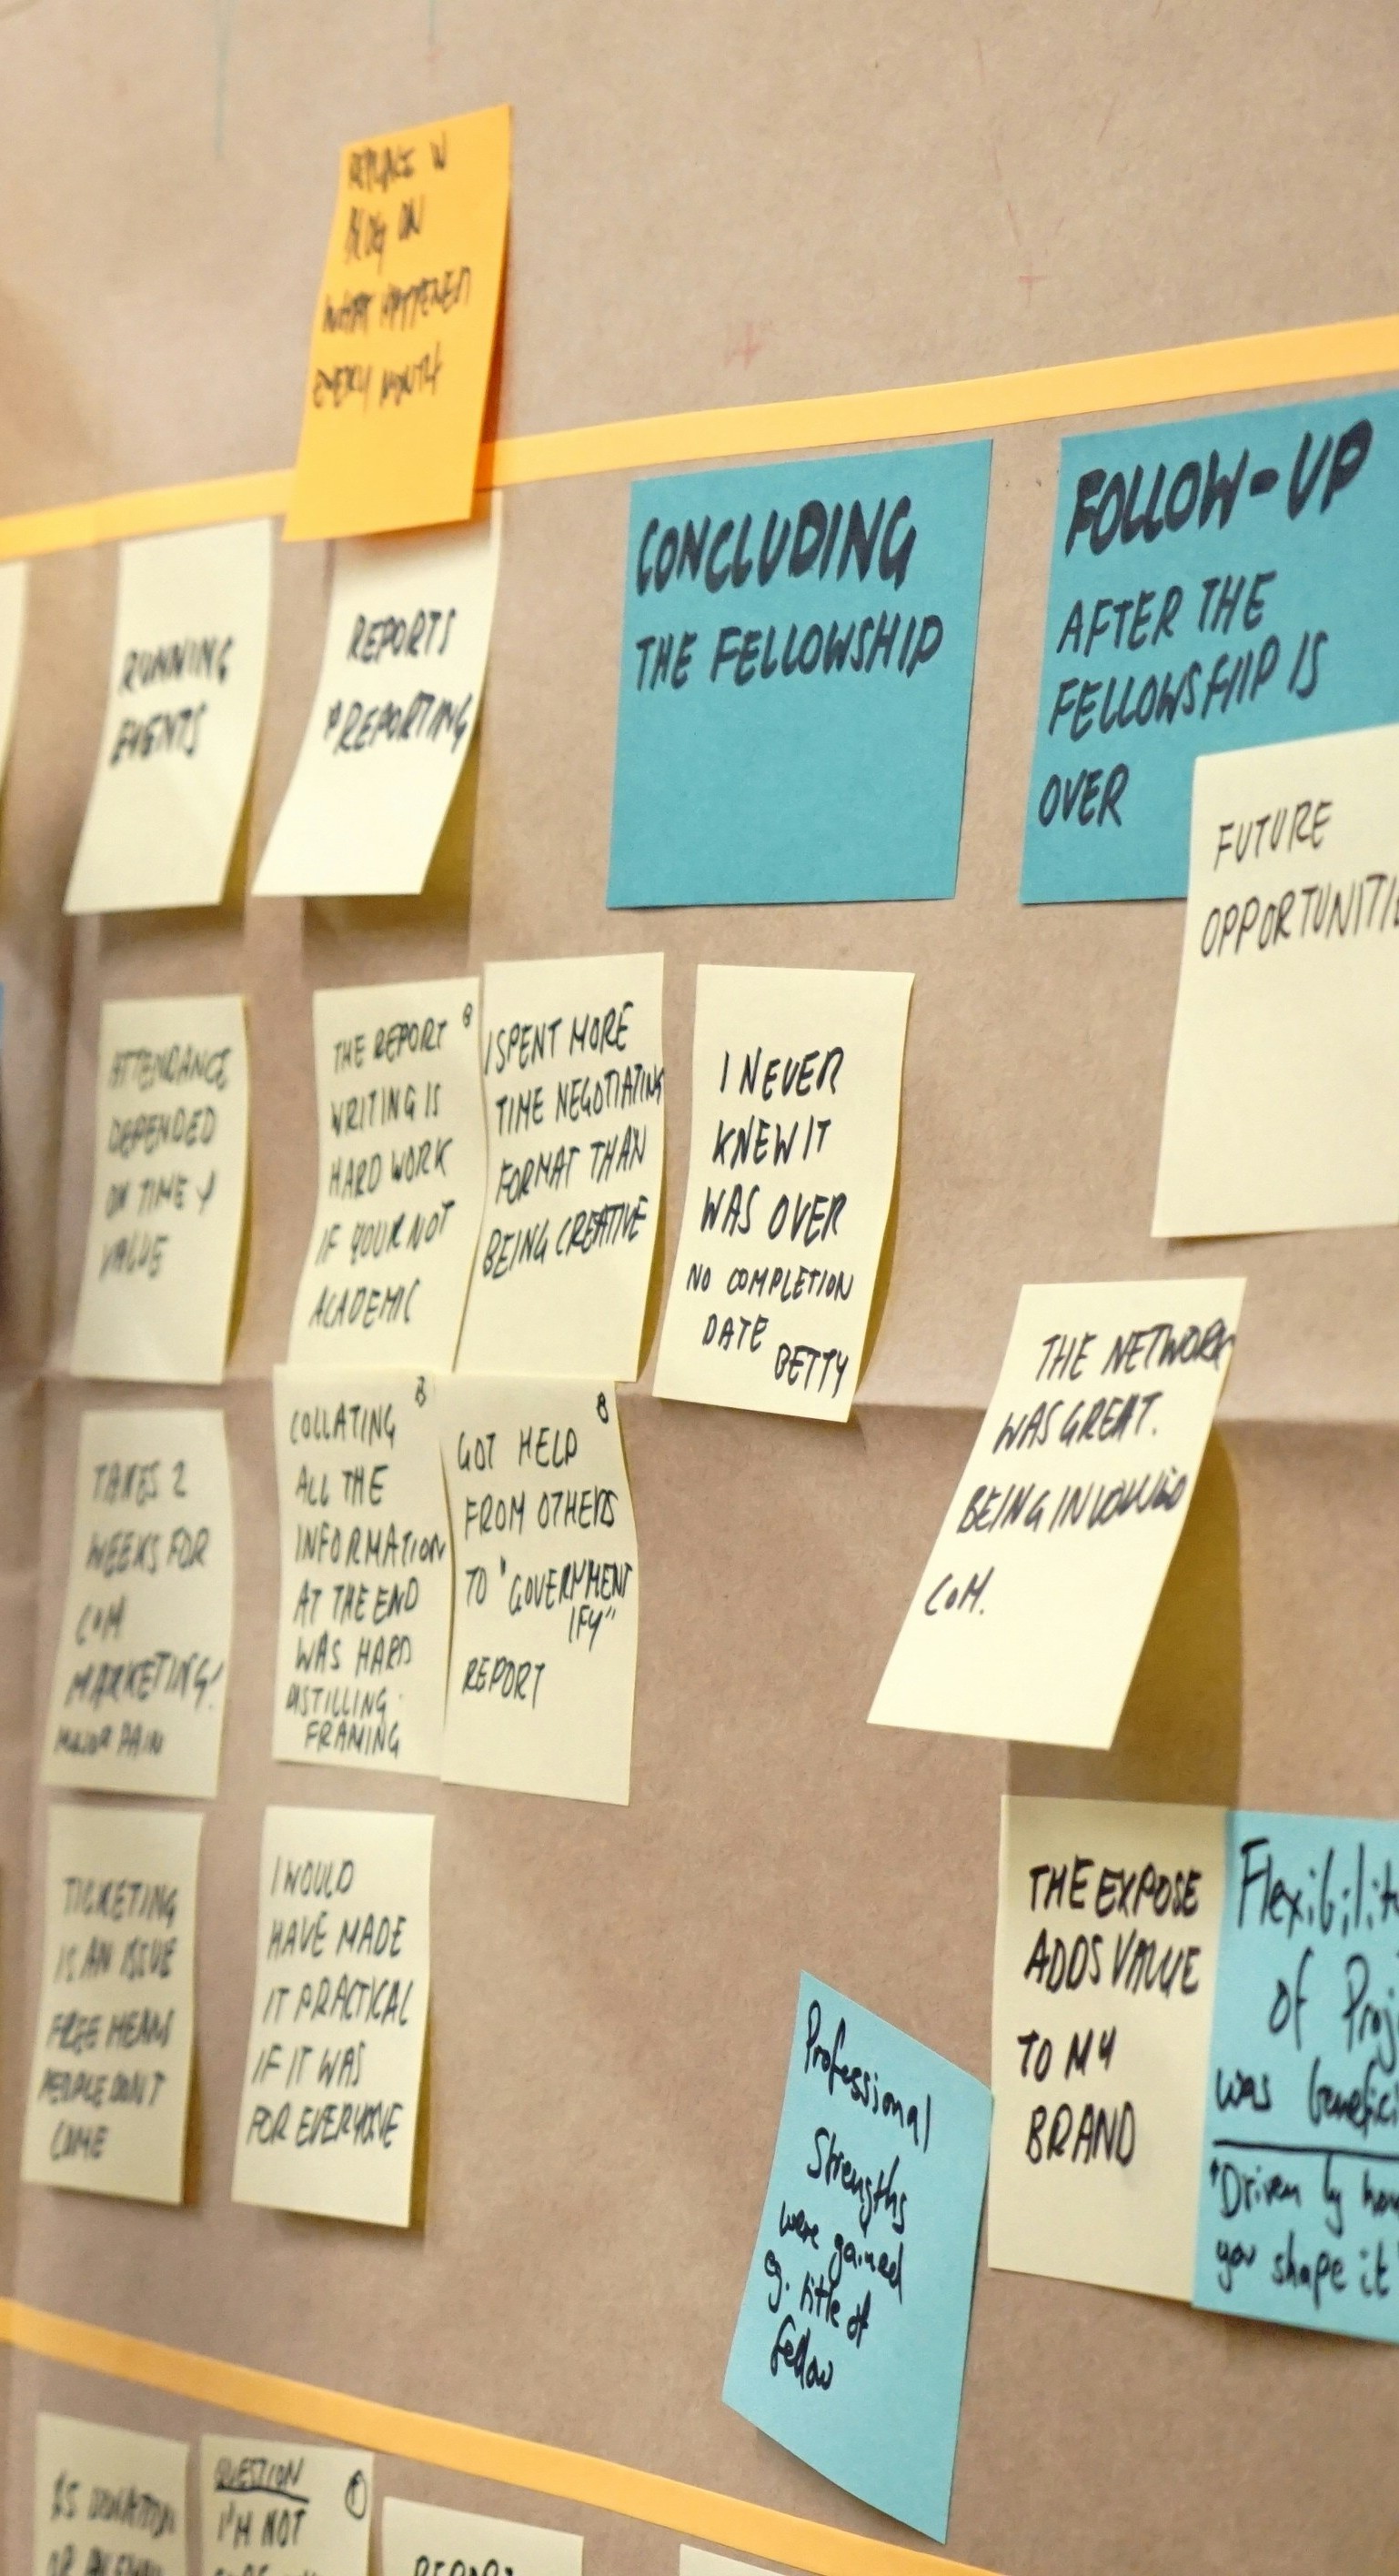 REPLACE W
BLOG ON
WHAT HAPPENED
EVERY MONTH
RUNNING
EVENTS
REPORTS
& REPORTING
CONCLUDING
THE FELLOWSHIP
FOLLOW-UP
AFTER THE
FELLOWSHIP IS
OVER
FUTURE
ATTENDANCE
DEPENDED
ON TIME &
VALUE
THE REPORT
WRITING IS
HARD WORK
IF YOUR NOT
ACADEMIC
I SPENT MORE
TIME NEGOTIATING
FORMAT THAN
BEING CREATIVE
I NEVER
KNEW IT
WAS OVER
NO COMPLETION
DATE
BETTY
THE NETWORK
WAS GREAT.
BEING INVOLVED
COM.
TAKES 2
WEEKS FOR
COM
MARKETING!
MAJOR PAIN
B
COLLATING
ALL THE
INFORMATION
AT THE END
WAS HARD
DISTILLING
FRAMING
B
GOT HELP
FROM OTHERS
TO "GOVERNMENT
IFY"
REPORT
TICKETING
IS AN ISSUE
FREE MEANS
PEOPLE DON'T
COME
I WOULD
HAVE MADE
IT PRACTICAL
IF IT WAS
FOR EVERYONE
Professional
Strengths
were gained
eg. title of
Fellow
THE EXPOSE
ADDS VALUE
TO MY
BRAND
of
was
"Driven by how
you shape it
$5 DONATION
QUESTION
I'M NOT
REPORT